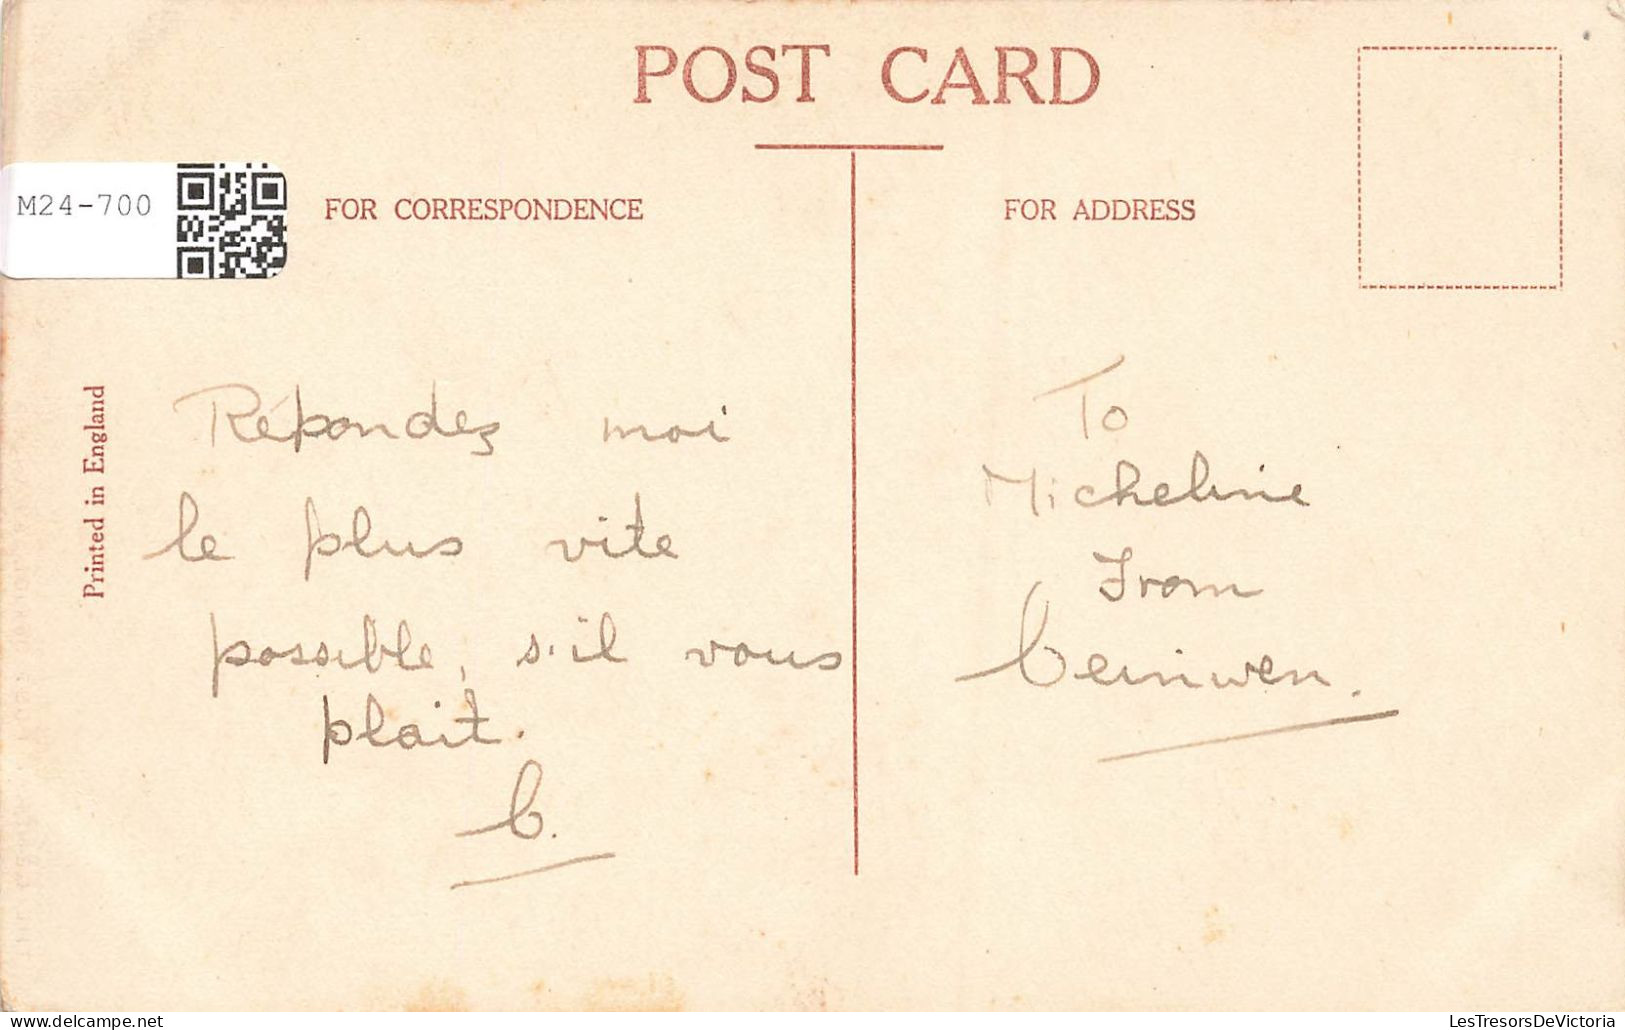 POST CARD
M24-700
FOR CORRESPONDENCE
FOR ADDRESS
Printed in England
Répondez moi
le plus vite
possible, s'il vous
plait.
To
Micheline
From
LesTresorsDeVictoria
delcampe.net